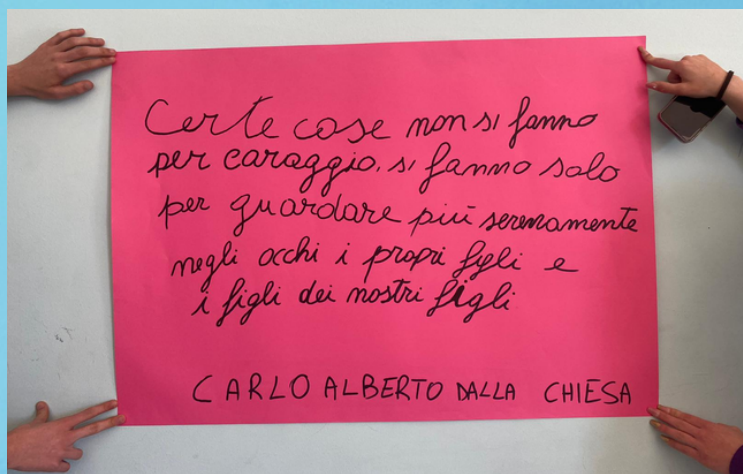 Certe cose non si fanno
per caraggio, si fanno solo
per guardare più serenamente
negli occhi i propri figli e
i figli dei nostri figli
CARLO ALBERTO DALLA CHIESA